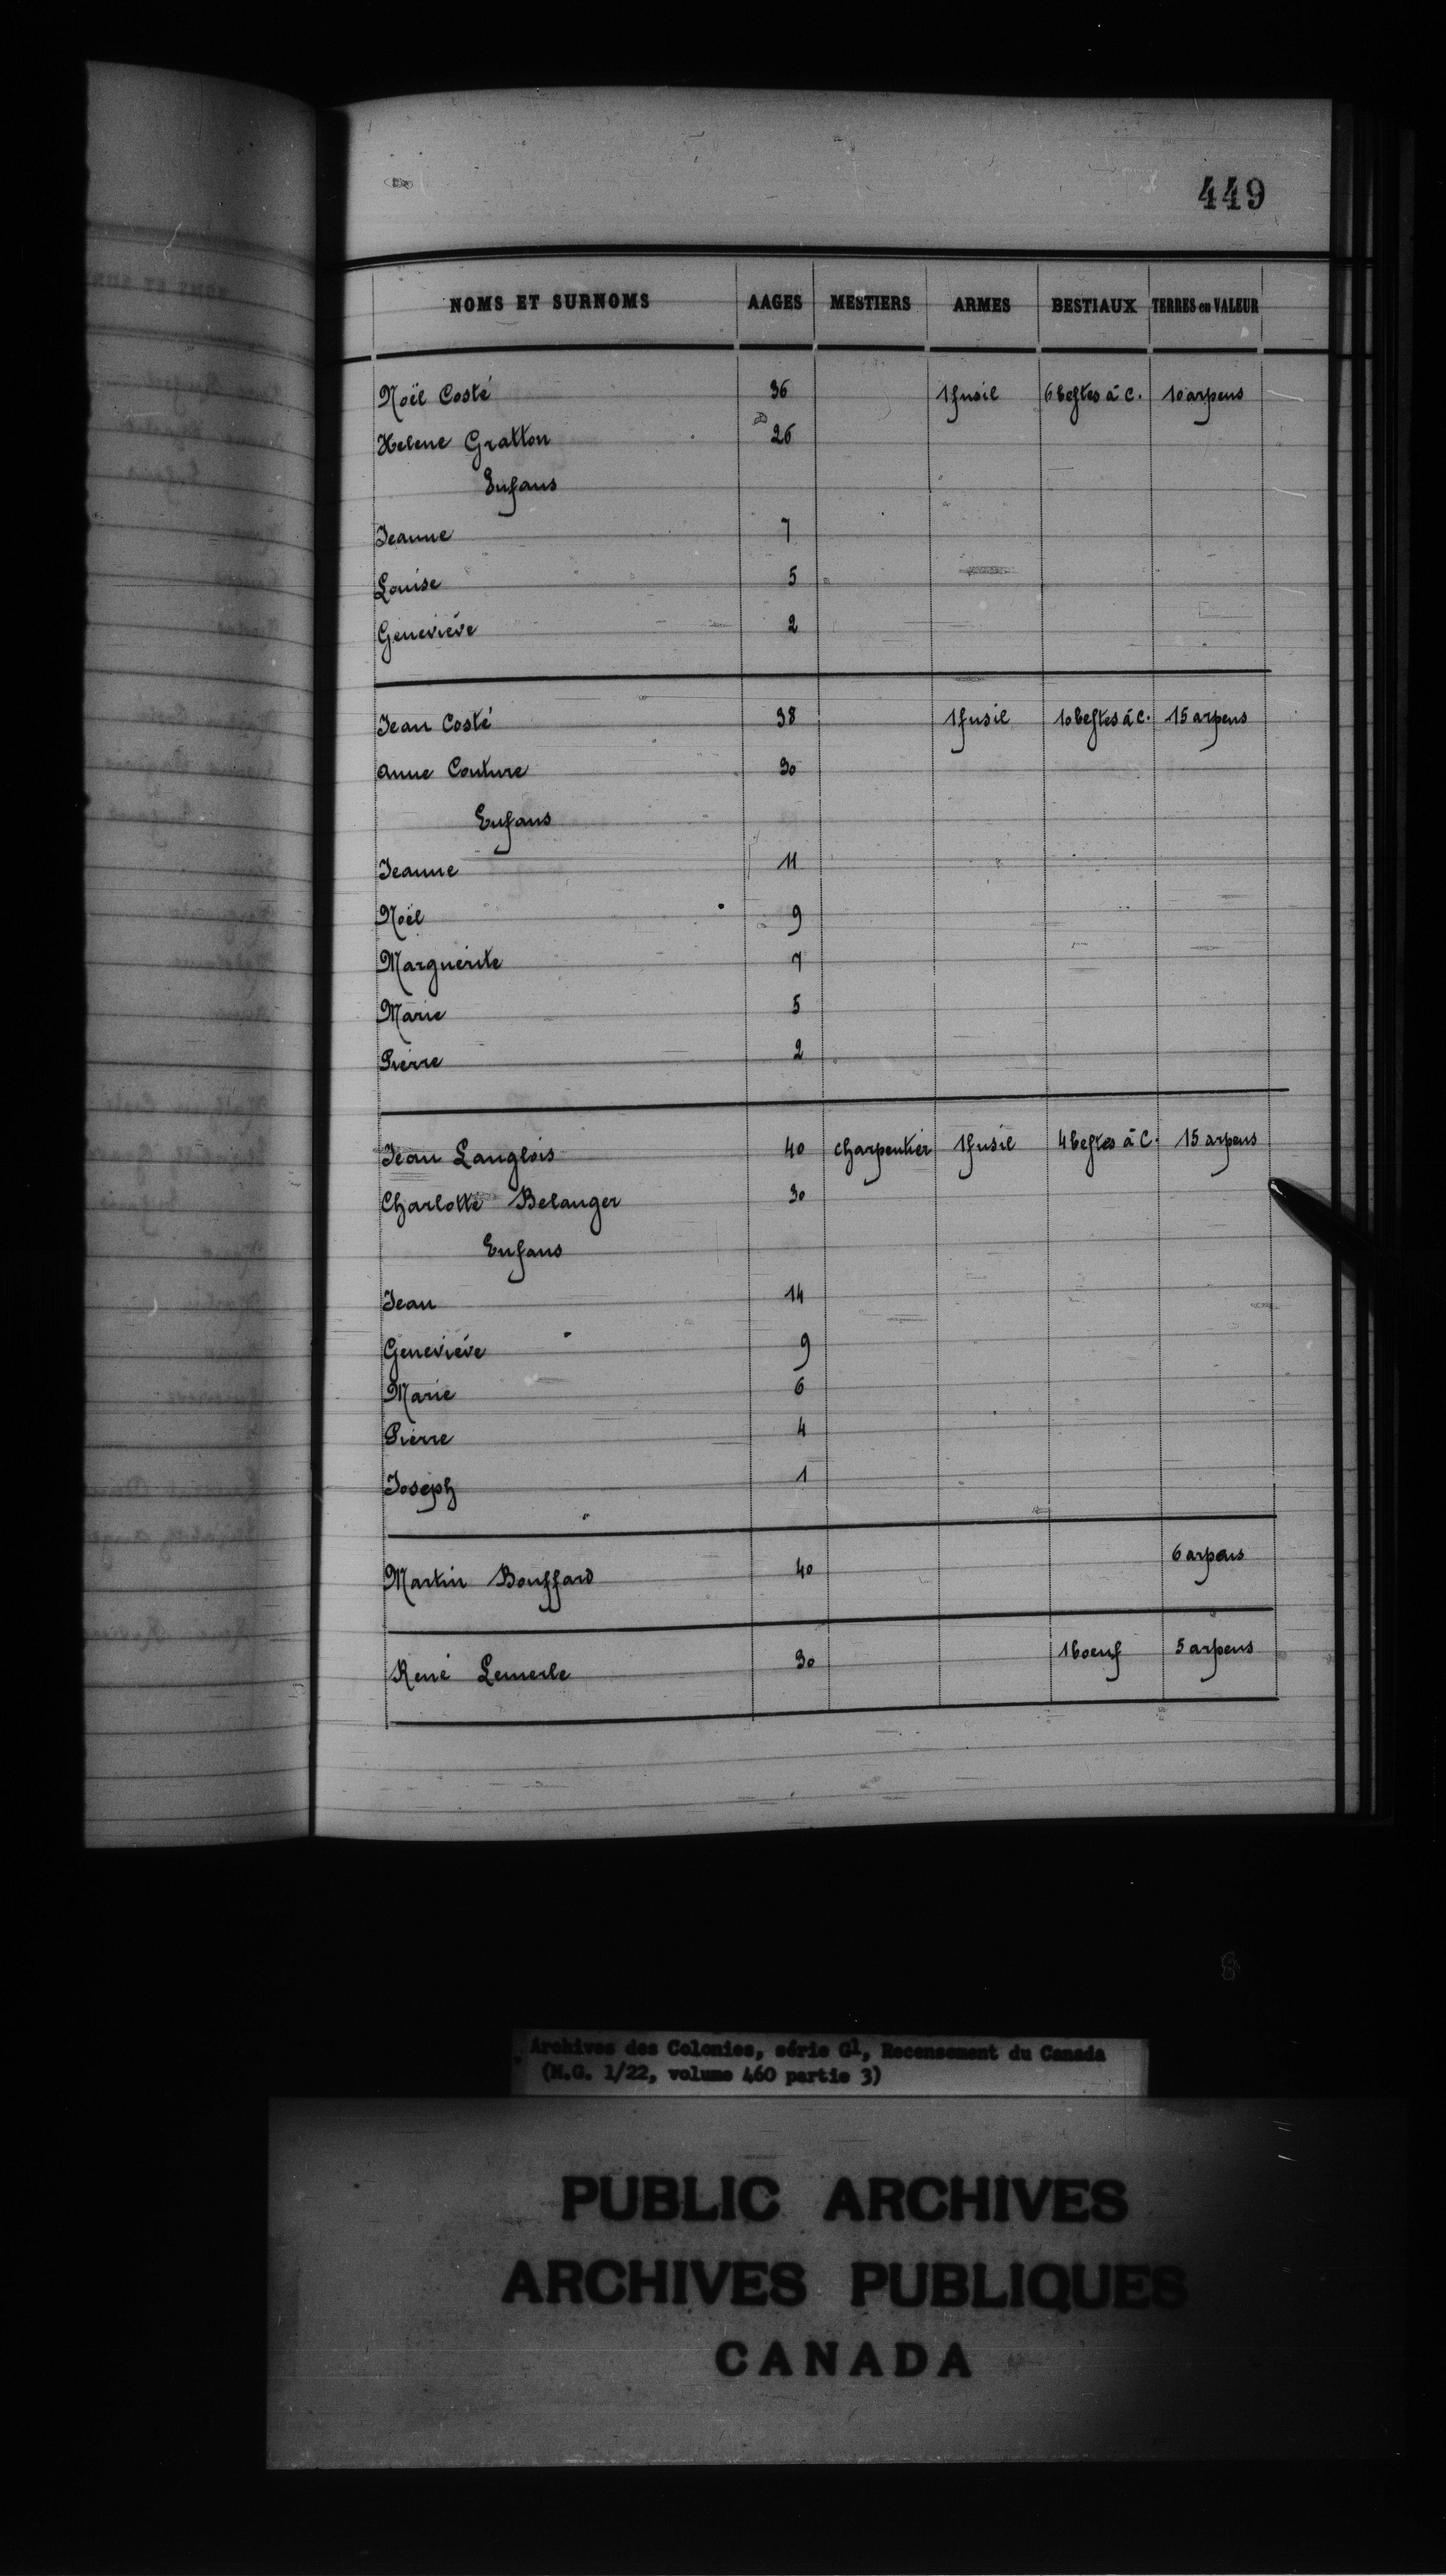 449
NOMS ET SURNOMS AAGES MESTIERS ARMES BESTIAUX TERRES en VALEUR
Noël Costé 36 1 fusil 6 bestes à c. 10 arpens
Helene Gratton 26
Enfans
Jeanne 7
Louise 5
Geneviéve 2
Jean Costé 38 1 fusil 10 bestes à c. 15 arpens
Anne Couture 30
Enfans
Jeanne 11
Noël 9
Marguerite 7
Marie 5
Pierre 2
Jean Langlois 40 charpentier 1 fusil 4 bestes à c. 15 arpens
Charlotte Belanger 30
Enfans
Jean 14
Geneviéve 9
Marie 6
Pierre 4
Joseph 1
Martin Bouffard 40 6 arpens
René Lemerle 30 1 boeuf 5 arpens
Archives des Colonies, série G1, Recensement du Canada
(M.G. 1/22, volume 460 partie 3)
PUBLIC ARCHIVES
ARCHIVES PUBLIQUES
CANADA